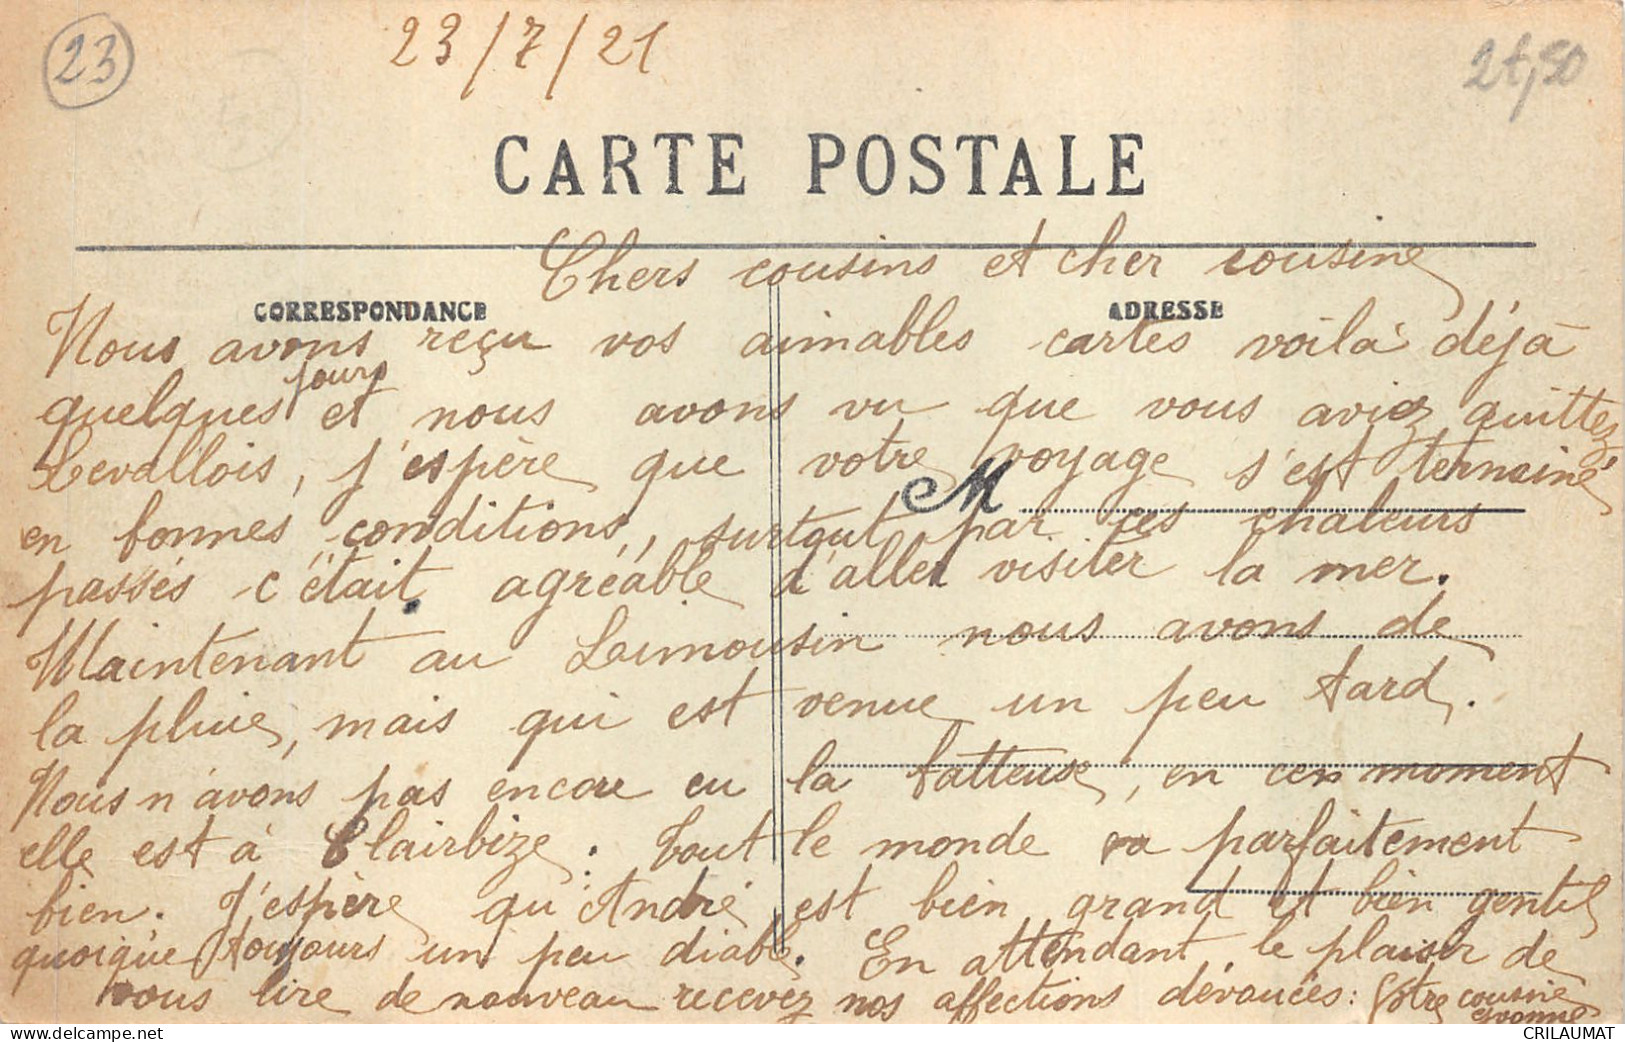 23
23/7/21
27,50
CARTE POSTALE
Chers cousins et cher cousine
CORRESPONDANCE
ADRESSE
Nous avons reçu vos aimables cartes voilà déjà
jours
quelques et nous avons vu que vous aviez quittez
Levallois, j'espère que votre voyage s'est terminé
M
en bonnes conditions, surtout par ces chaleurs
passés c'était agréable d'aller visiter la mer.
Maintenant au Limousin nous avons de
la pluie, mais qui est venue un peu tard.
Nous n'avons pas encore eu la batteuse, en ces moment
elle est à Clairbize. Tout le monde va parfaitement
bien. J'espère qu'André est bien grand et bien gentil
quoique toujours un peu diable. En attendant le plaisir de
vous lire de nouveau recevez nos affections dévouées : Votre cousine
Yvonne
www.delcampe.net
CRILAUMAT